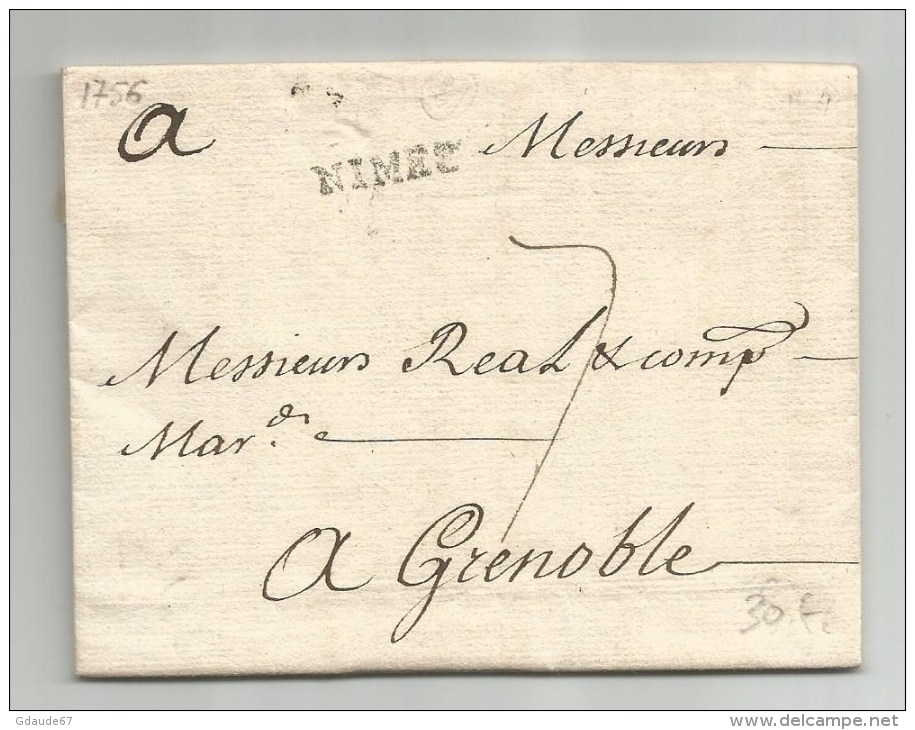 1756
a Messieurs
NIMES
Messieurs Real & comp
Mar ds.
a Grenoble
7
30
Gdaude67
www.delcampe.net